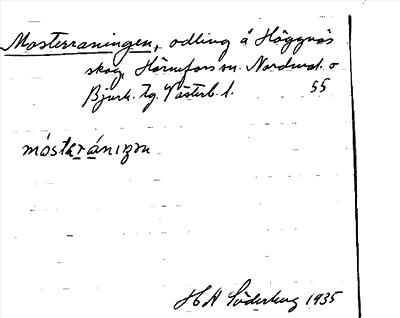 Mosterraningen, odling å Häggnäs
skog, Hörnefors sn. Nordmal. o
Bjurh. tg. Västerb. l. 55
H A Söderberg 1935